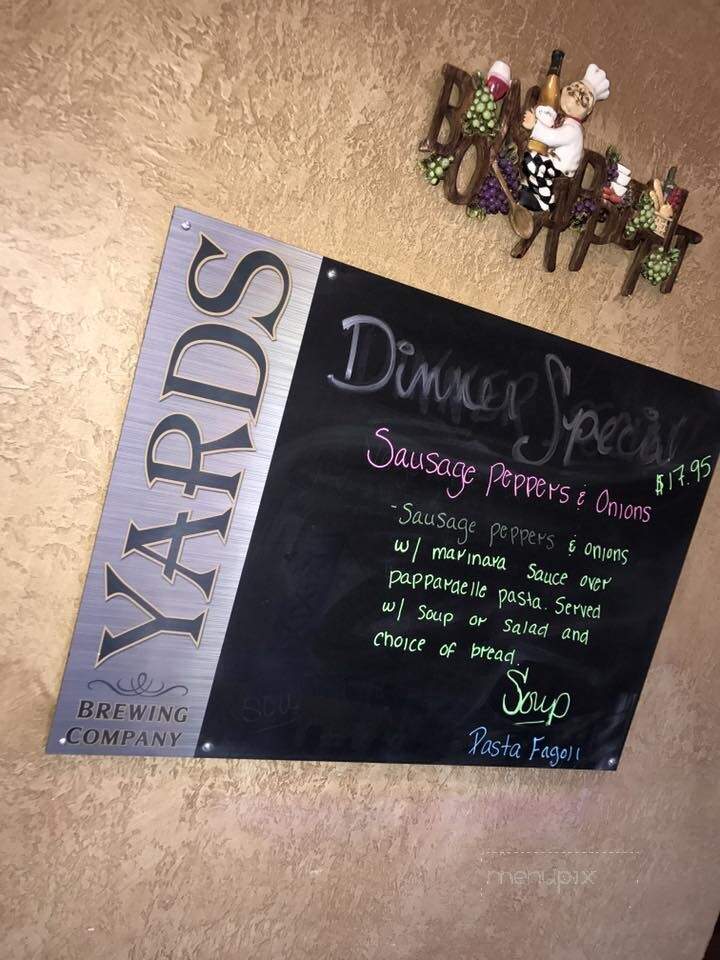 BON
APPETIT
YARDS
BREWING
COMPANY
Dinner Special
Sausage Peppers & Onions
$17.95
-Sausage peppers & onions
w/ marinara sauce over
pappardelle pasta. Served
w/ soup or salad and
choice of bread.
Soup
Pasta Fagoli
menupix